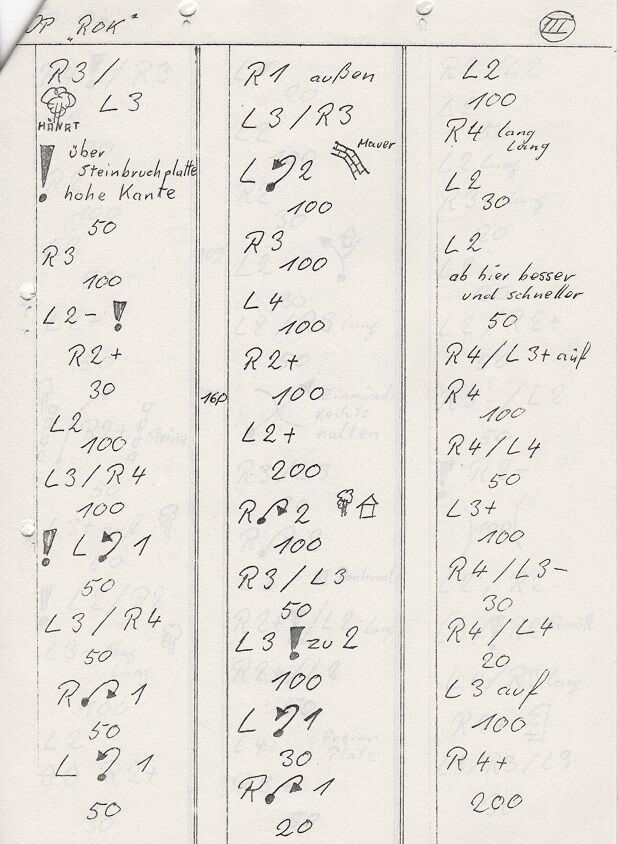 "ROK"
III
R3/
L3
HÄNGT
! über
Steinbruchplatte
hohe Kante
50
R3
100
L2- !
R2+
30
L2
100
L3/R4
100
! L 1
50
L3/R4
50
R 1
50
L 1
50
R1 außen
L3/R3
L 2
Mauer
100
R3
100
L4
100
R2+
160
100
L2+
200
R 2
100
R3/L3
50
L3 ! zu 2
100
L 1
30
R 1
20
L2
100
R4 lang
lang
L2
30
L2
ab hier besser
und schneller
50
R4/L3+ auf
R4
100
R4/L4
50
L3+
100
R4/L3-
30
R4/L4
20
L3 auf
100
R4+
200